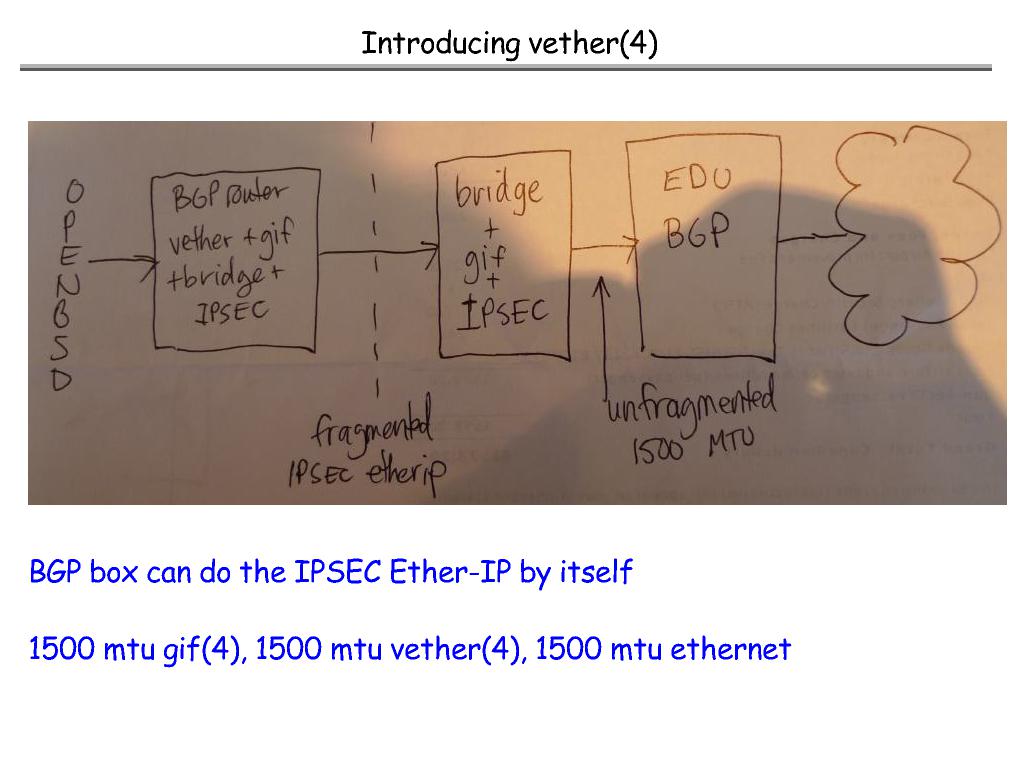 Introducing vether(4)
OPENBSD
BGP router
vether + gif
+bridge +
IPSEC
bridge
+
gif
+
IPSEC
EDU
BGP
fragmented
IPSEC etherip
unfragmented
1500 MTU
BGP box can do the IPSEC Ether-IP by itself
1500 mtu gif(4), 1500 mtu vether(4), 1500 mtu ethernet